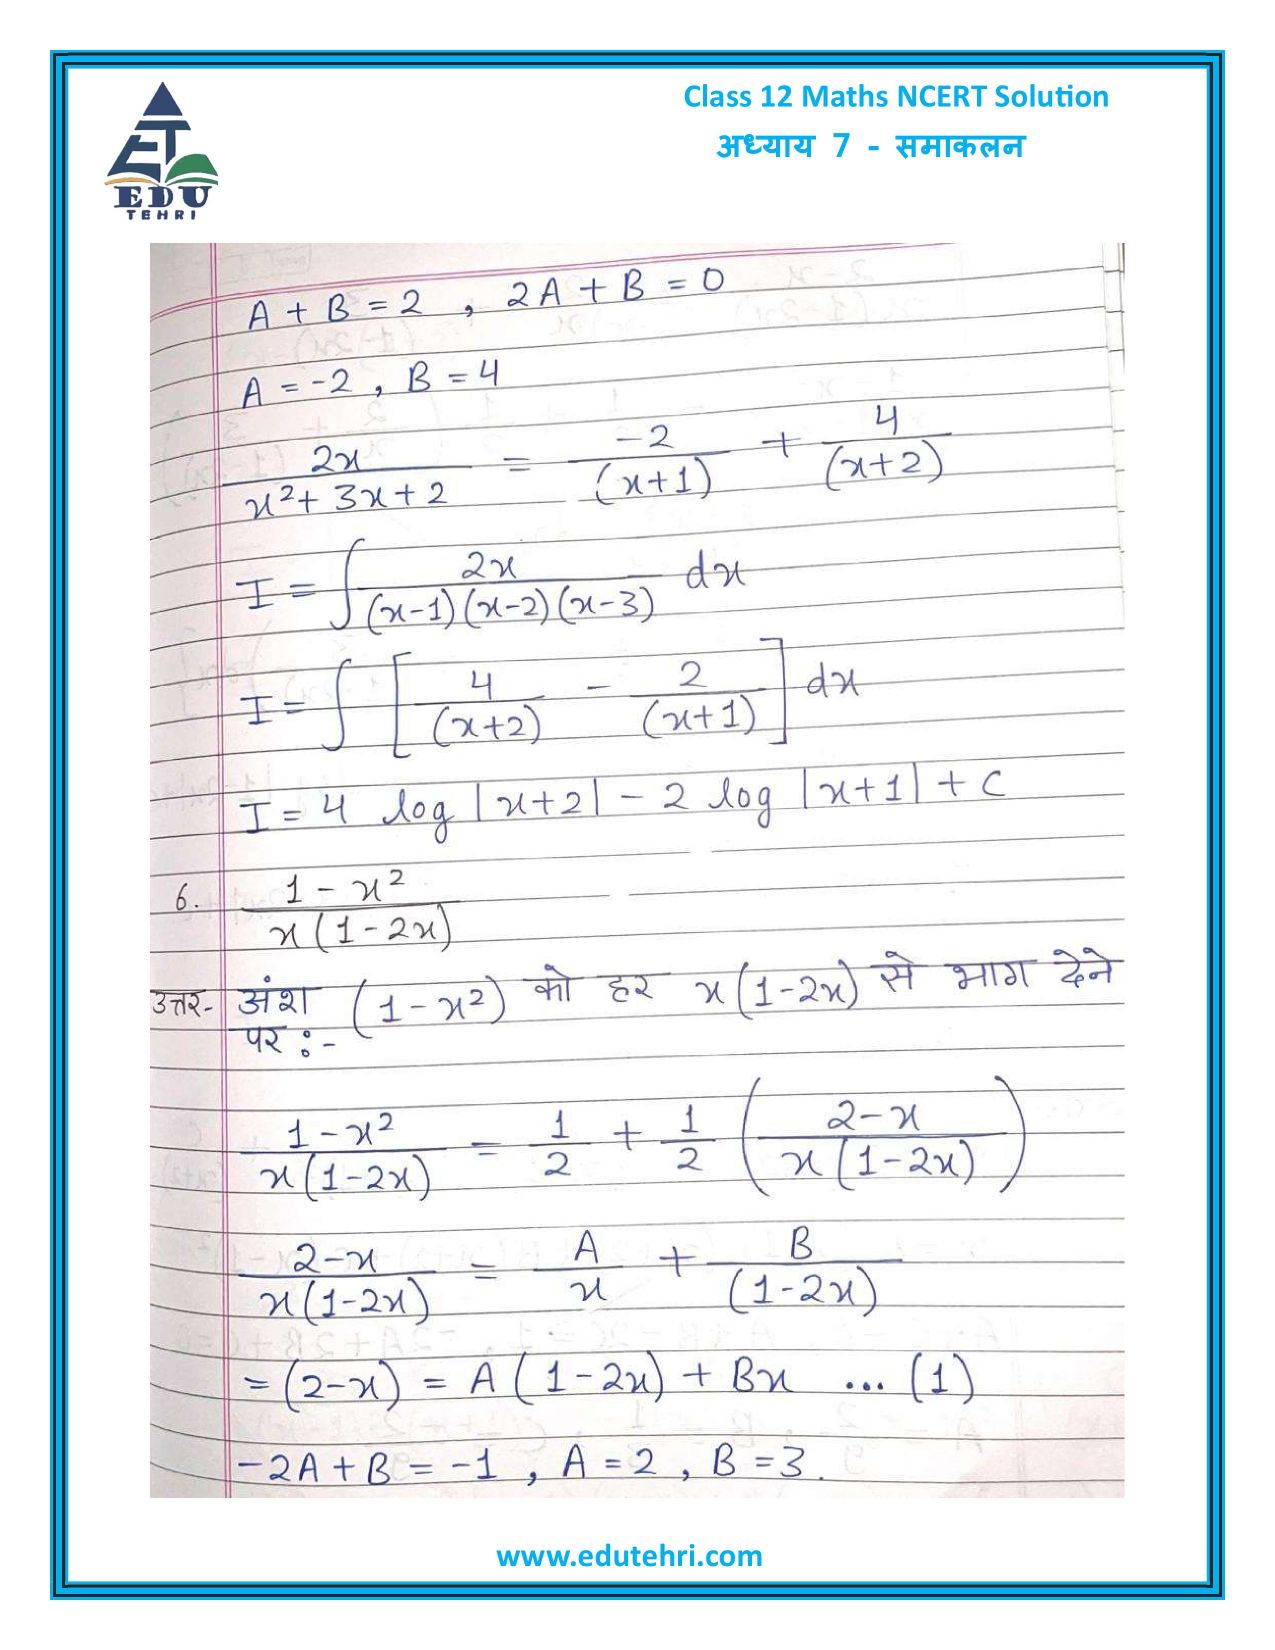 Class 12 Maths NCERT Solution
अध्याय 7 - समाकलन
EDU
TEHRI
A + B = 2 , 2A + B = 0
A = -2 , B = 4
2x/(x²+3x+2) = -2/(x+1) + 4/(x+2)
I = ∫ 2x/((x-1)(x-2)(x-3)) dx
I = ∫ [4/(x+2) - 2/(x+1)] dx
I = 4 log |x+2| - 2 log |x+1| + C
6. (1-x²)/(x(1-2x))
उत्तर- अंश (1-x²) को हर x(1-2x) से भाग देने
पर :-
(1-x²)/(x(1-2x)) = 1/2 + 1/2 ((2-x)/(x(1-2x)))
(2-x)/(x(1-2x)) = A/x + B/(1-2x)
= (2-x) = A(1-2x) + Bx ... (1)
-2A + B = -1 , A = 2 , B = 3.
www.edutehri.com